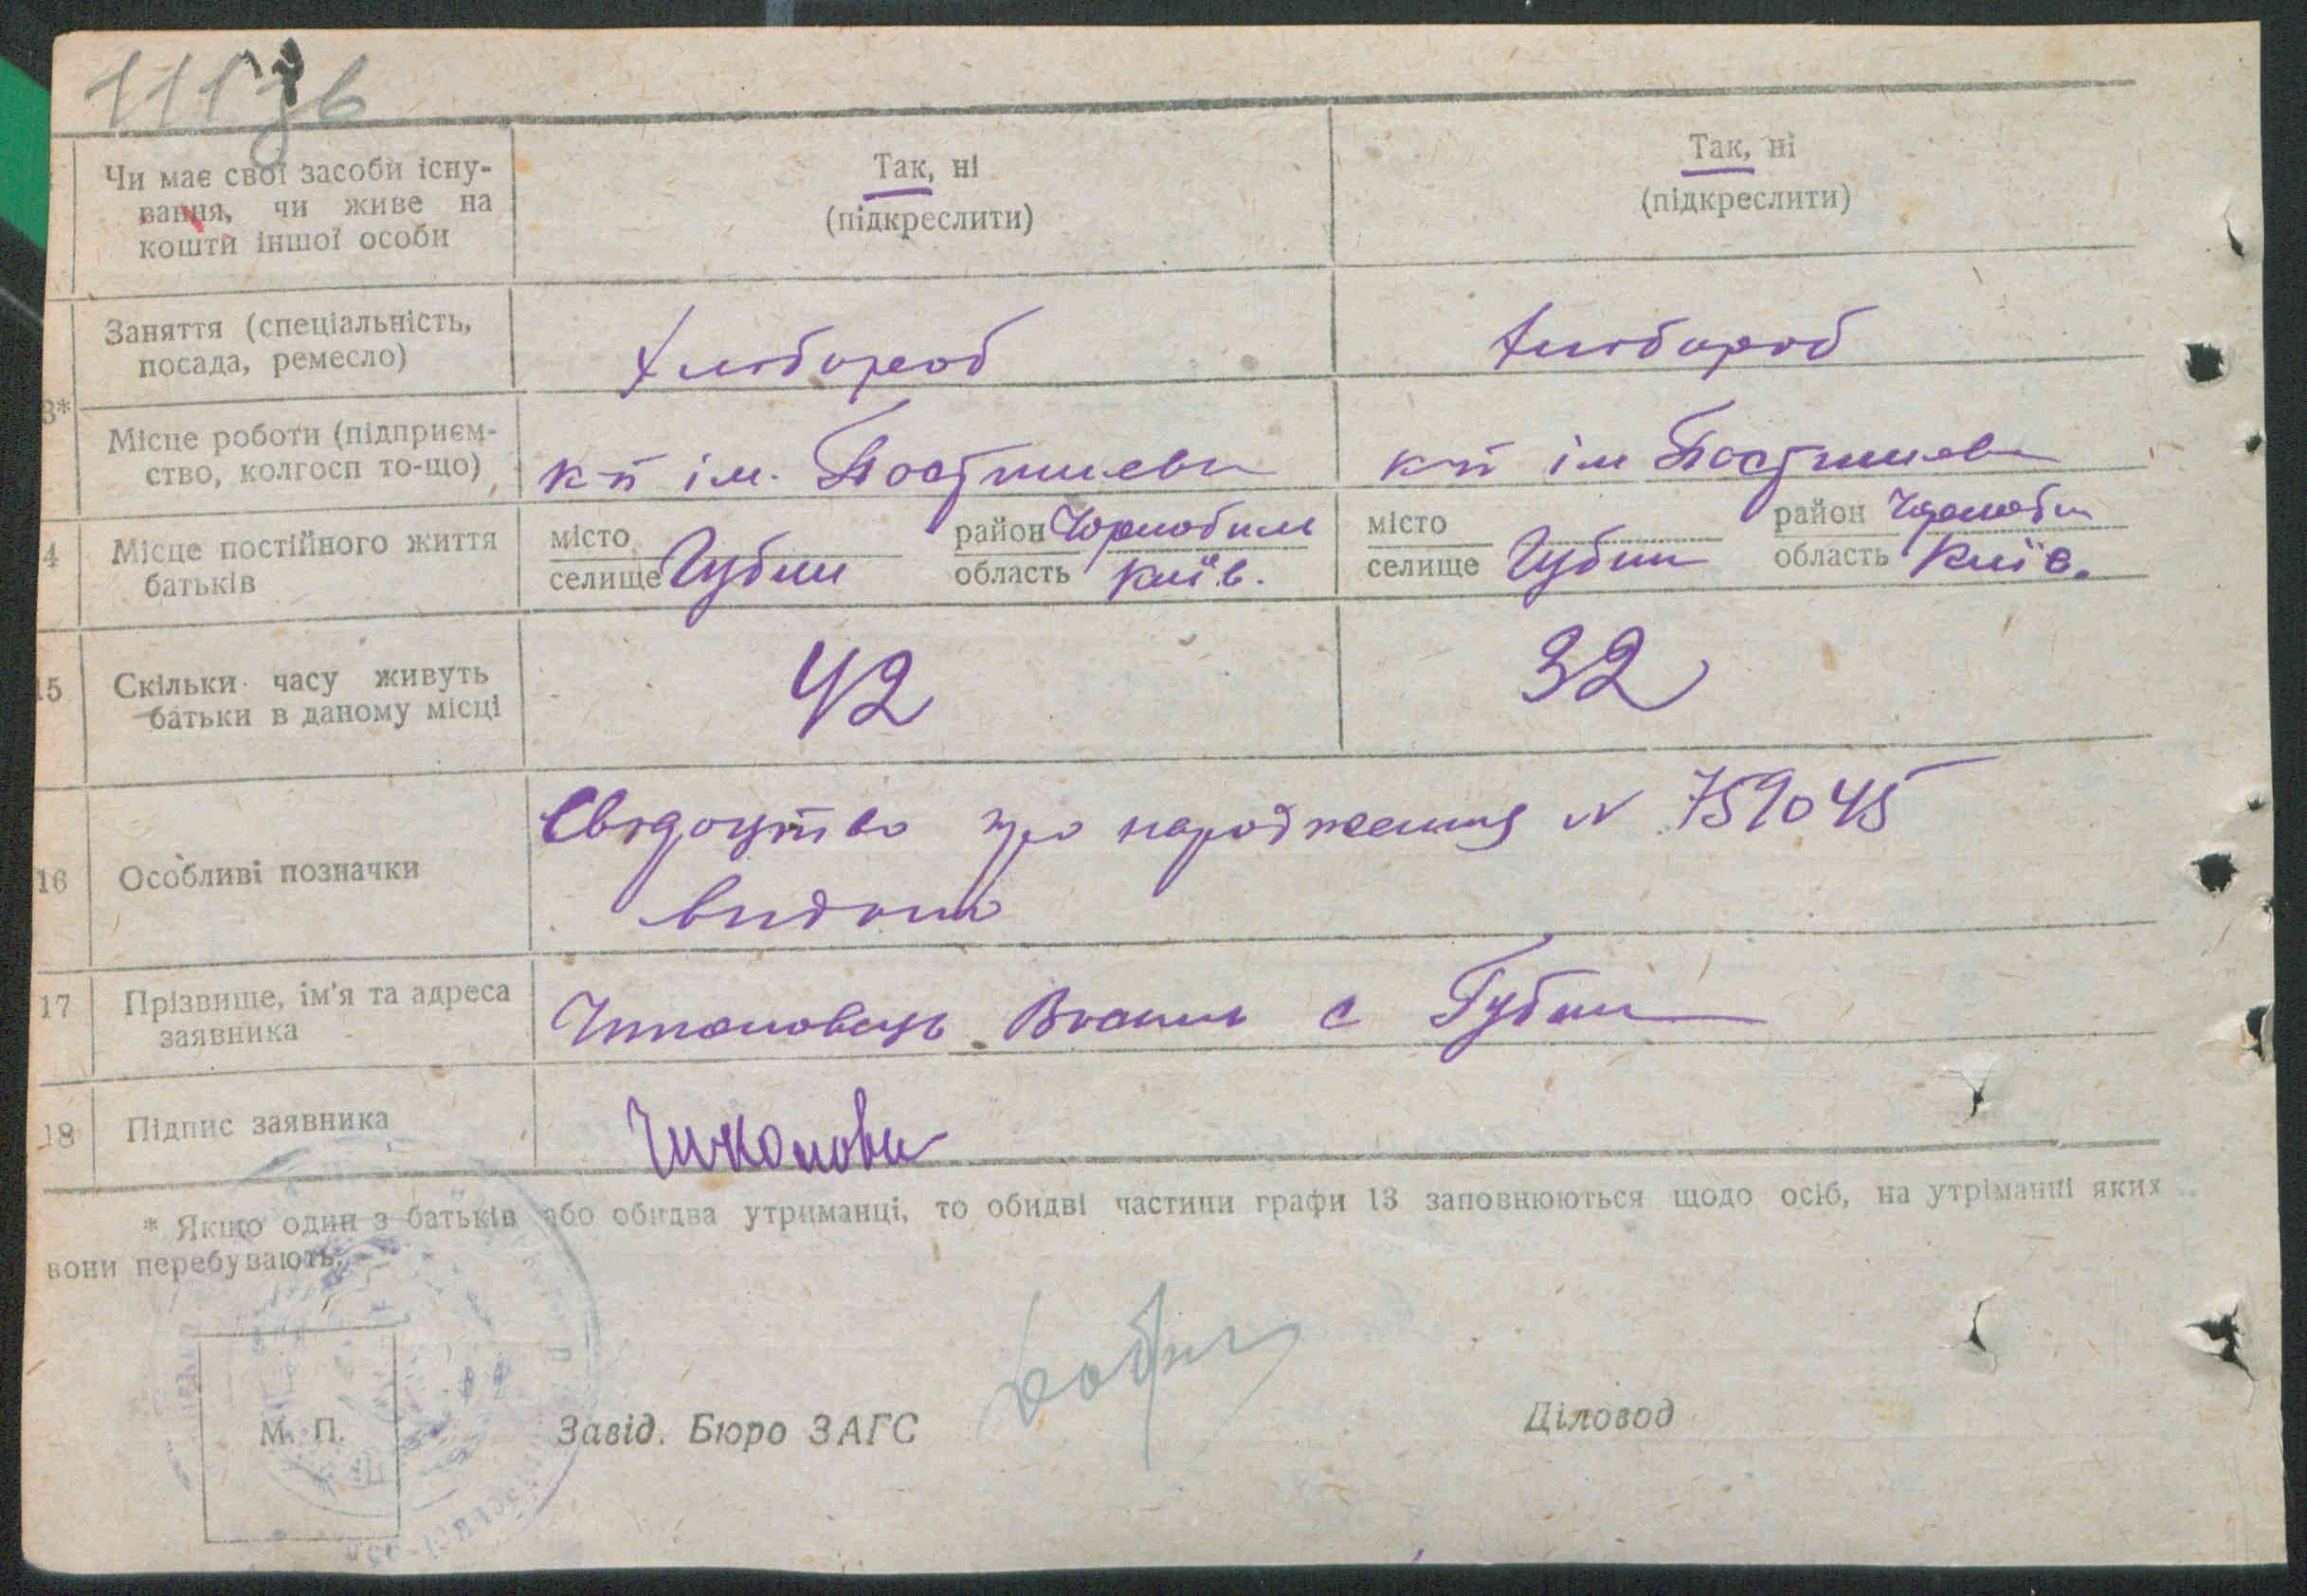 Чи має свої засоби існу-
вання, чи живе на
кошти іншої особи
Так, ні
(підкреслити)
Так, ні
(підкреслити)
Заняття (спеціальність,
посада, ремесло)
Хлібороб
Хлібороб
3*
Місце роботи (підприєм-
ство, колгосп то-що)
к-п ім. Постишева
к-п ім Постишева
4
Місце постійного життя
батьків
місто
селище Губин
район Чорнобиль
область Київ.
місто
селище Губин
район
область Київ.
15
Скільки часу живуть
батьки в даному місці
42
32
16
Особливі позначки
Свідоцтво про народження N 759045
видано
17
Прізвище, ім'я та адреса
заявника
с Губин
18
Підпис заявника
* Якщо один з батьків або обидва утриманці, то обидві частини графи 13 заповнюються щодо осіб, на утріманні яких
вони перебувають.
М. П.
Завід. Бюро ЗАГС
Діловод